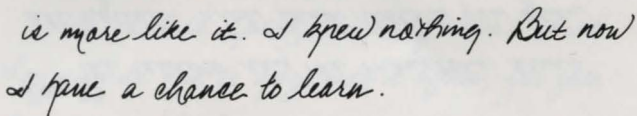 is more like it. I knew nothing. But now
I have a chance to learn.